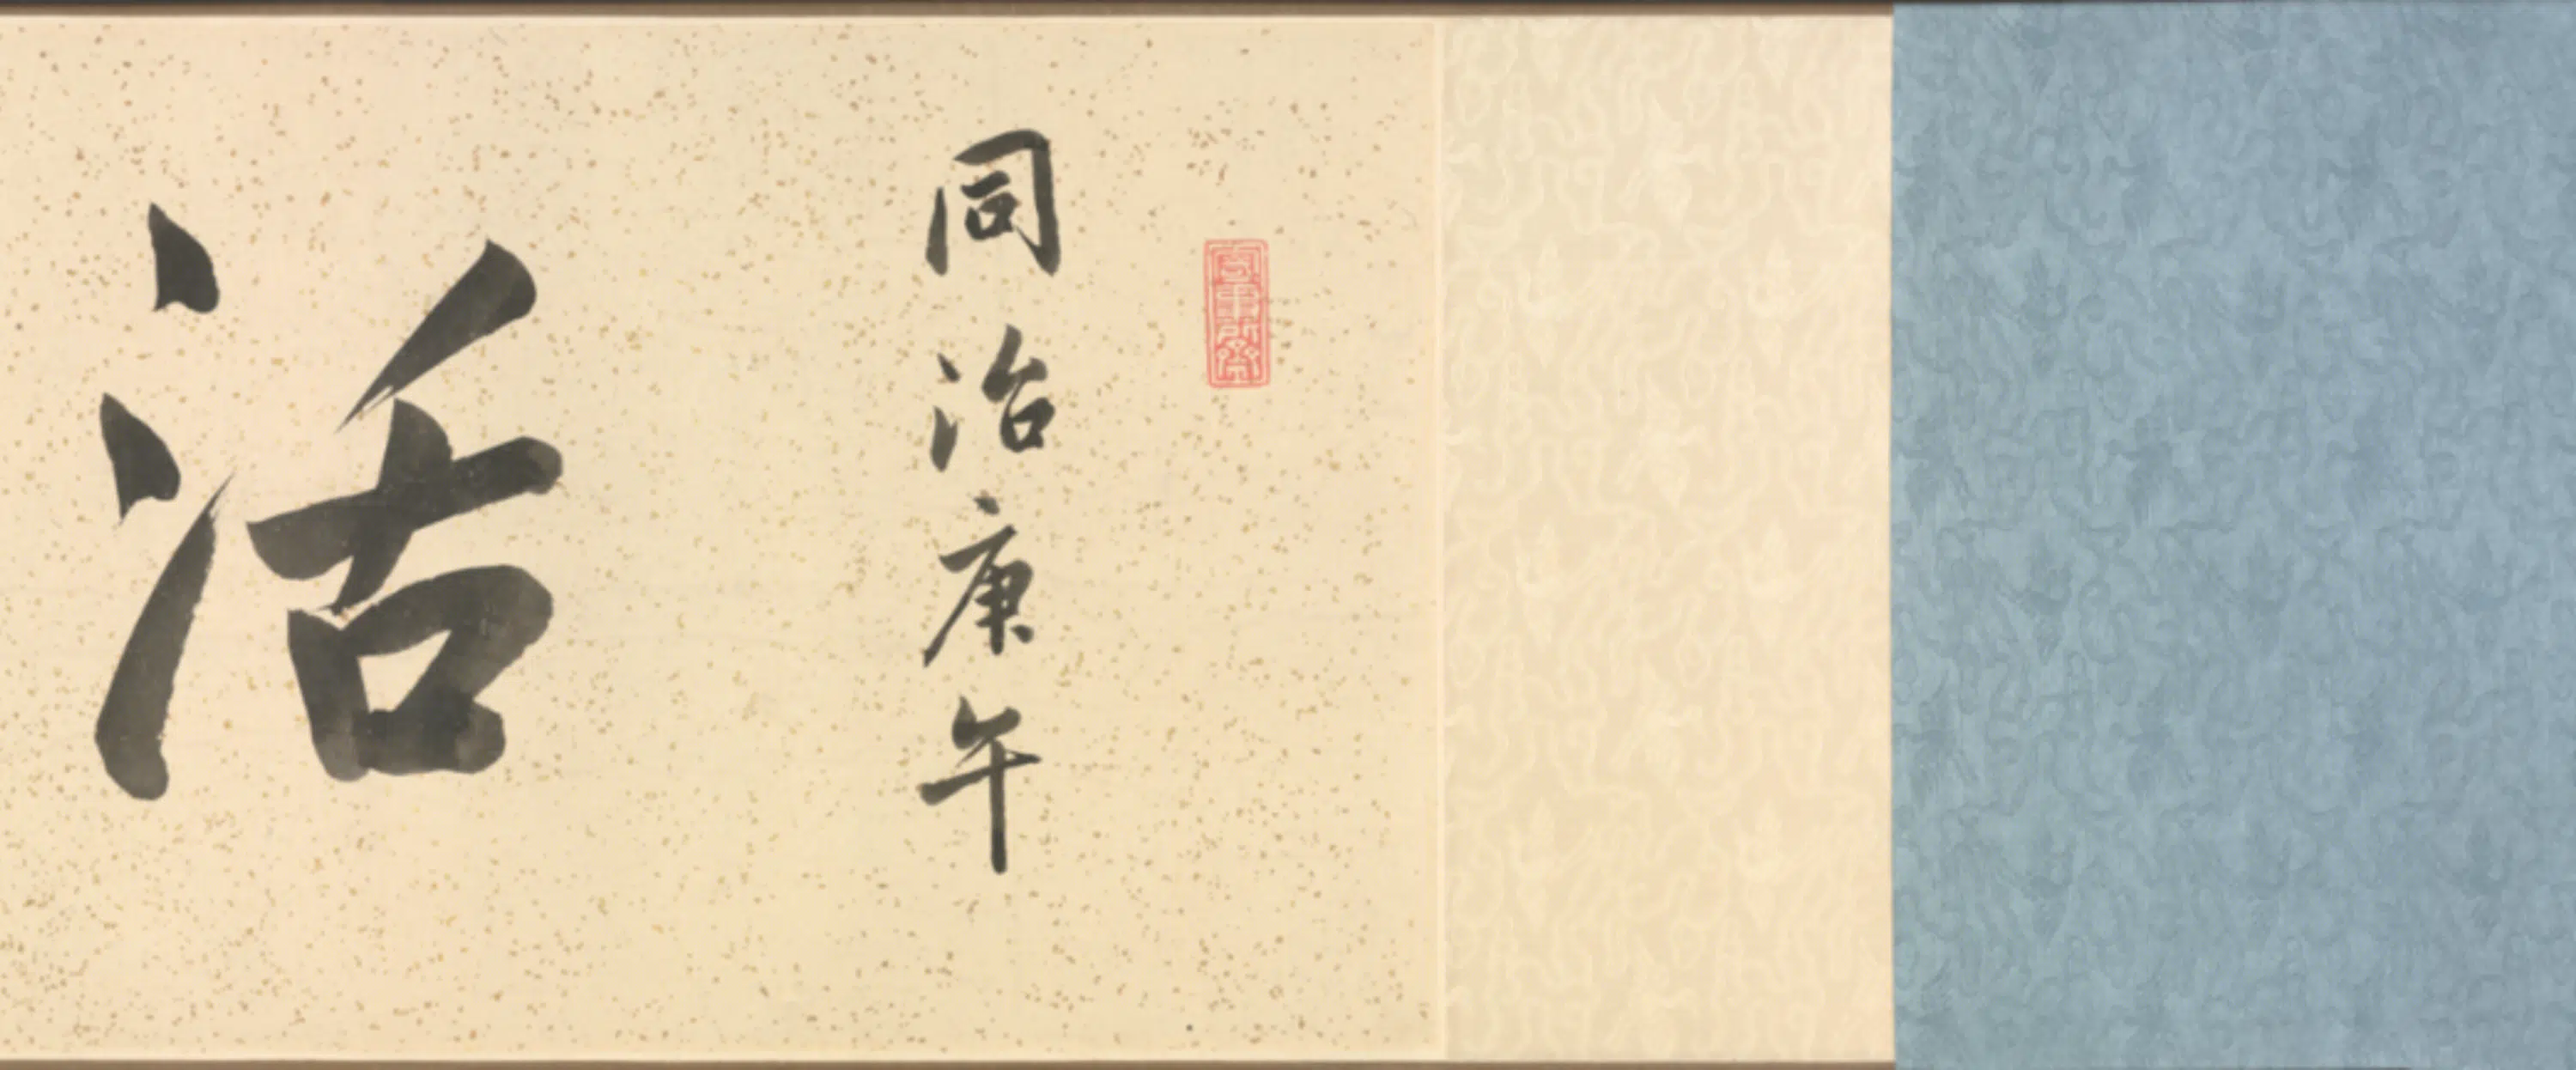 同治庚午
活